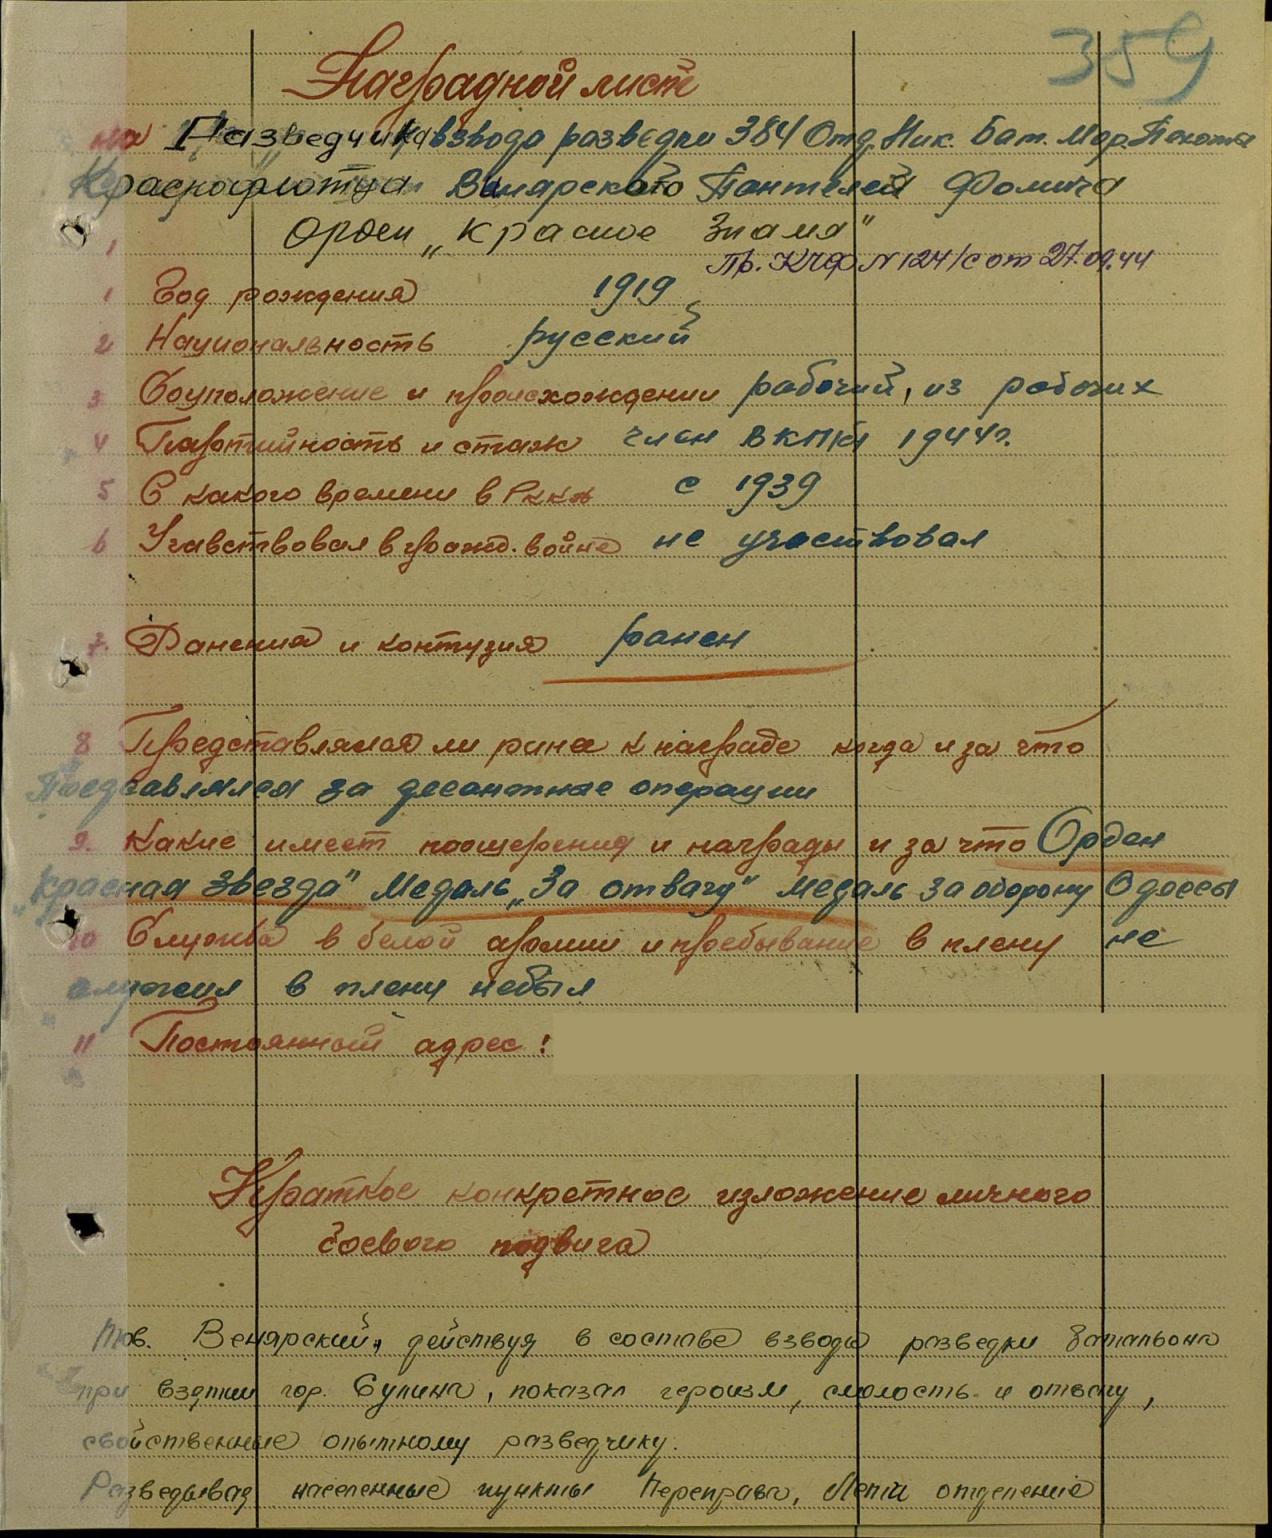 359
Наградной лист
на Разведчика взвода разведки 384 Отд. Ник. Бат. Мор. Пехоты
Краснофлотца Винярского Пантелей Фомича
Орден „Красное Знамя"
Пр. КЧФ № 124/с от 27.09.44
1 Год рождения 1919
2 Национальность русский
3 Соцположение и происхождении рабочий, из рабочих
4 Партийность и стаж член ВКП(б) 1944 г.
5 С какого времени в РККА с 1939
6 Учавствовал в гражд. войне не участвовал
7. Ранения и контузия ранен
8 Представлялся ли ранее к награде когда и за что
Представлялся за десантные операции
9. Какие имеет поощерения и награды и за что Орден
„Красная звезда" Медаль „За отвагу" медаль За оборону Одессы
10 Служба в белой армии и пребывание в плену не
служил в плену небыл
11 Постоянный адрес:
Краткое конкретное изложение личного
боевого подвига
Тов. Венярский, действуя в составе взвода разведки батальона
при взятии гор. Сулина, показал героизм, смелость и отвагу,
свойственные опытному разведчику.
Разведывая населенные пункты Переправа, Лети отделение